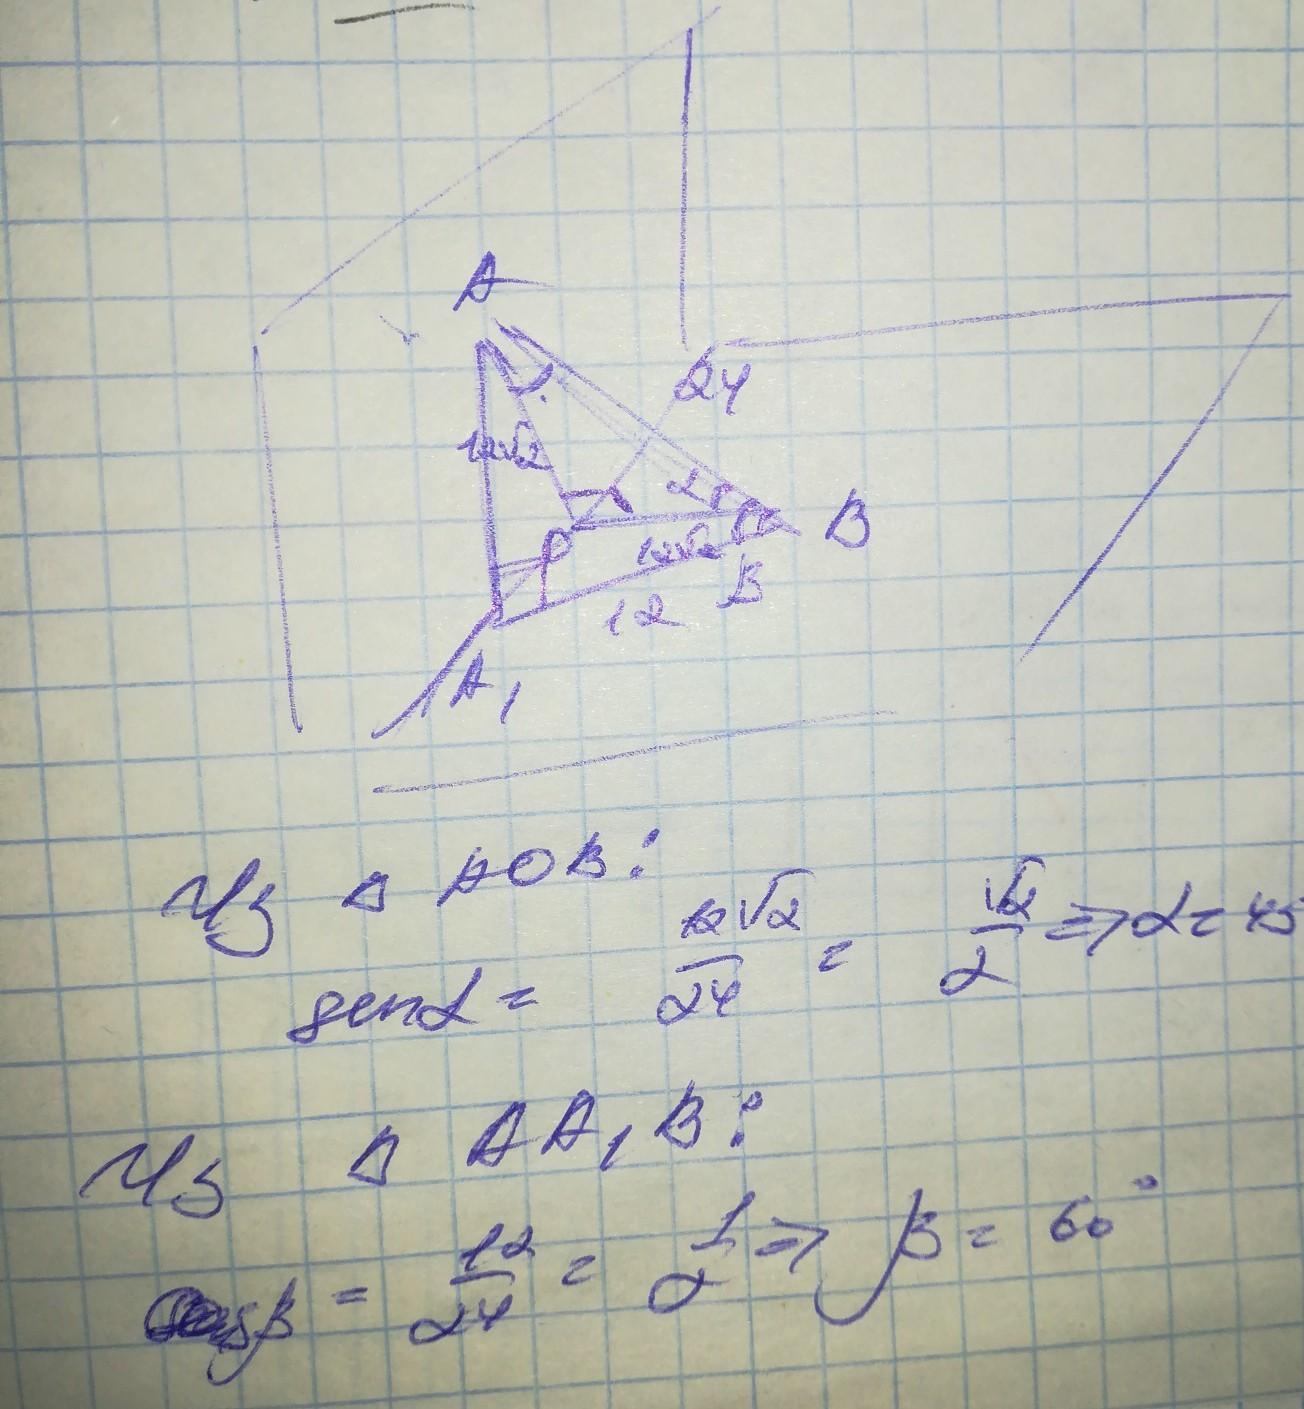 A
24
12√2
2
B
O
12√2
B
12
A₁
Из △ AOB:
sin α = 12√2/24 = √2/2 => α = 45
Из △ AA₁B:
cos β = 12/24 = 1/2 => β = 60°